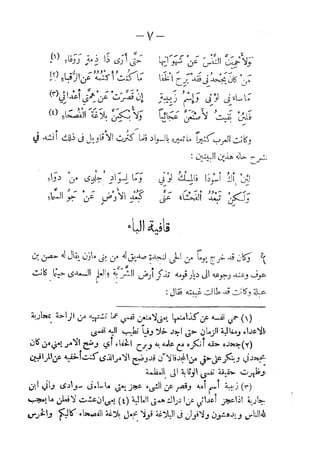 — ٧ —
ولأحمين النفس عن شهواتها حتى أرى ذا ذمة ووفاء (١)
من كان يجحدني فقد برح الخفا ما كنت أكتمه عن الرقباء (٢)
ما ساءني لوني وإسم زبيبة إن قصرت عن همتي أعدائي (٣)
فلئن بقيت لأصنعن عجائباً ولأبكمن بلاغة الفصحاء (٤)
وكانت العرب كثيراً ما تعيره بالسواد فلما كثرت الأقاويل في ذلك أنشد في
شرح حاله هذين البيتين :
لئن أك أسوداً فالمسك لوني وما لسواد جلدي من دواء
ولكن تبعد الفحشاء عني كبعد الأرض عن جو السماء
قافية الباء
وكان قد خرج يوماً من الحي لنجدة صديق له من بني مازن يقال له حصن بن
عوف وعند رجوعه الى ديار قومه تذكر أرض الشربة والعلم السعدي حيثما كانت
عبلة وكانت قد طالت غيبته فقال :
(١) حمى نفسه عن كذا منعها يعني لأمنعن نفسي عما تشتهيه من الراحة بمحاربة
الأعداء ومغالبة الزمان حتى اجد خلاً وفياً تطيب اليه نفسي
(٢) جحده حقه أنكره مع علمه به وبرح الخفاء، أي وضح الأمر يعني من كان
يجحدني وينكر علي حقي من المجد فالآن قد وضح الأمر الذي كنت أخفيه عن المراقبين
وظهرت حقيقة نفسي الوثابة الى العظمة
(٣) زبيبة أسم أمه وقصر عن الشيء عجز يعني ما ساءني سوادي وأني ابن
جارية اذا عجز أعدائي عن ادراك همتي العالية (٤) يعني ان عشت لأفعلن ما يعجب
له الناس ويدهشون ولأقولن في البلاغة قولاً يجعل بلاغة الفصحاء كالبكم والخرس